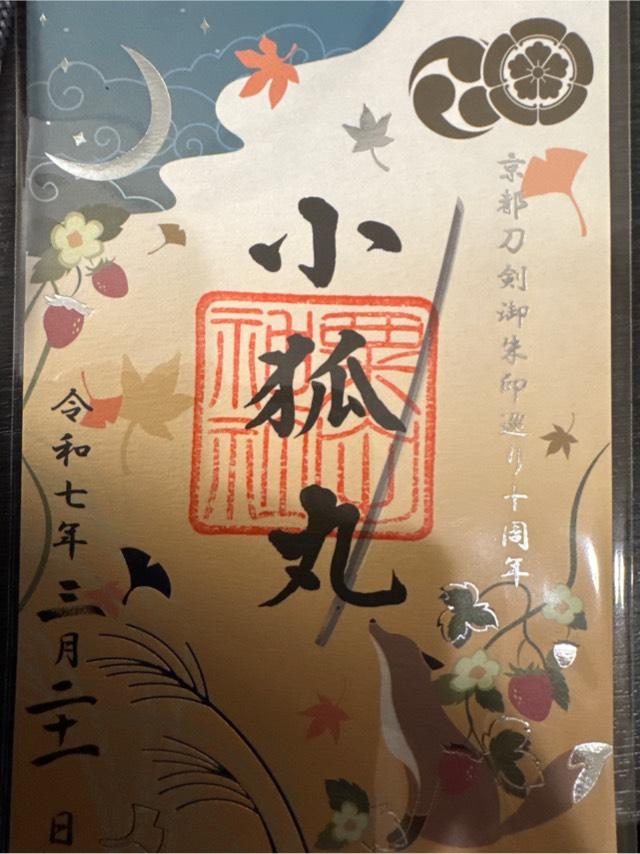 京都刀剣御朱印巡り十周年
小狐丸
粟田神社
令和七年三月二十一日